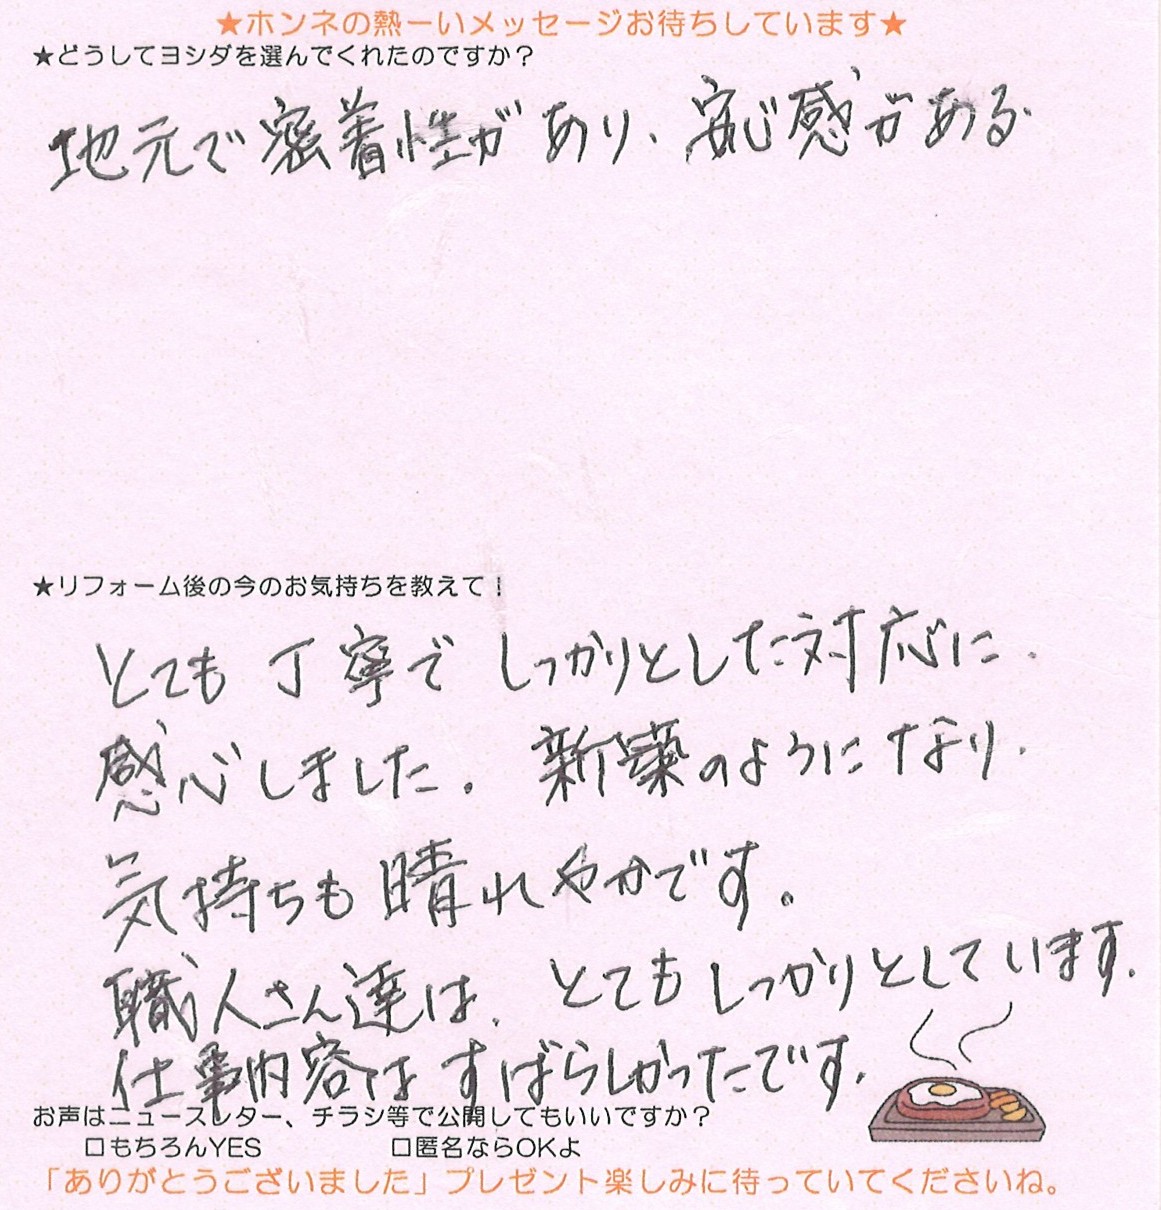 ★ホンネの熱ーいメッセージお待ちしています★
★どうしてヨシダを選んでくれたのですか？
地元で密着性があり、安心感がある
★リフォーム後の今のお気持ちを教えて！
とても丁寧でしっかりとした対応に、
感心しました。新築のようになり、
気持ちも晴れやかです。
職人さん達は、とてもしっかりとしています。
仕事内容はすばらしかったです。
お声はニュースレター、チラシ等で公開してもいいですか？
□もちろんYES □匿名ならOKよ
「ありがとうございました」プレゼント楽しみに待っていてくださいね。